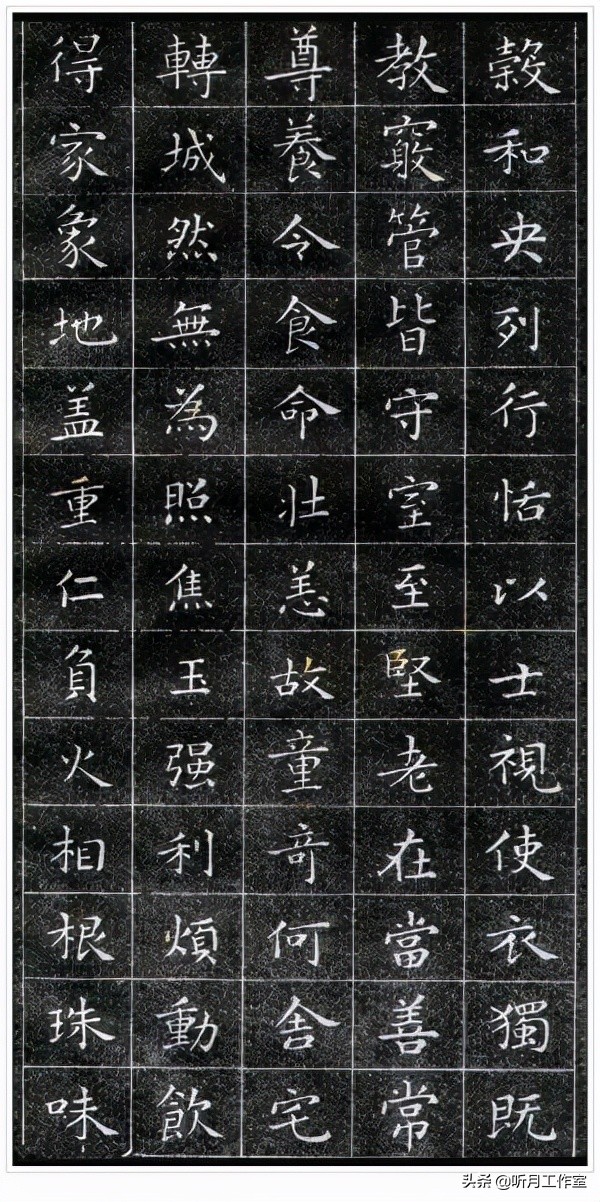 穀和央列行恬以士視使衣獨既
教竅管皆守室至堅老在當善常
尊養令食命壯恙故童奇何舍宅
轉城然無為照焦玉强利煩動飲
得家象地盖重仁負火相根珠味
头条 @听月工作室